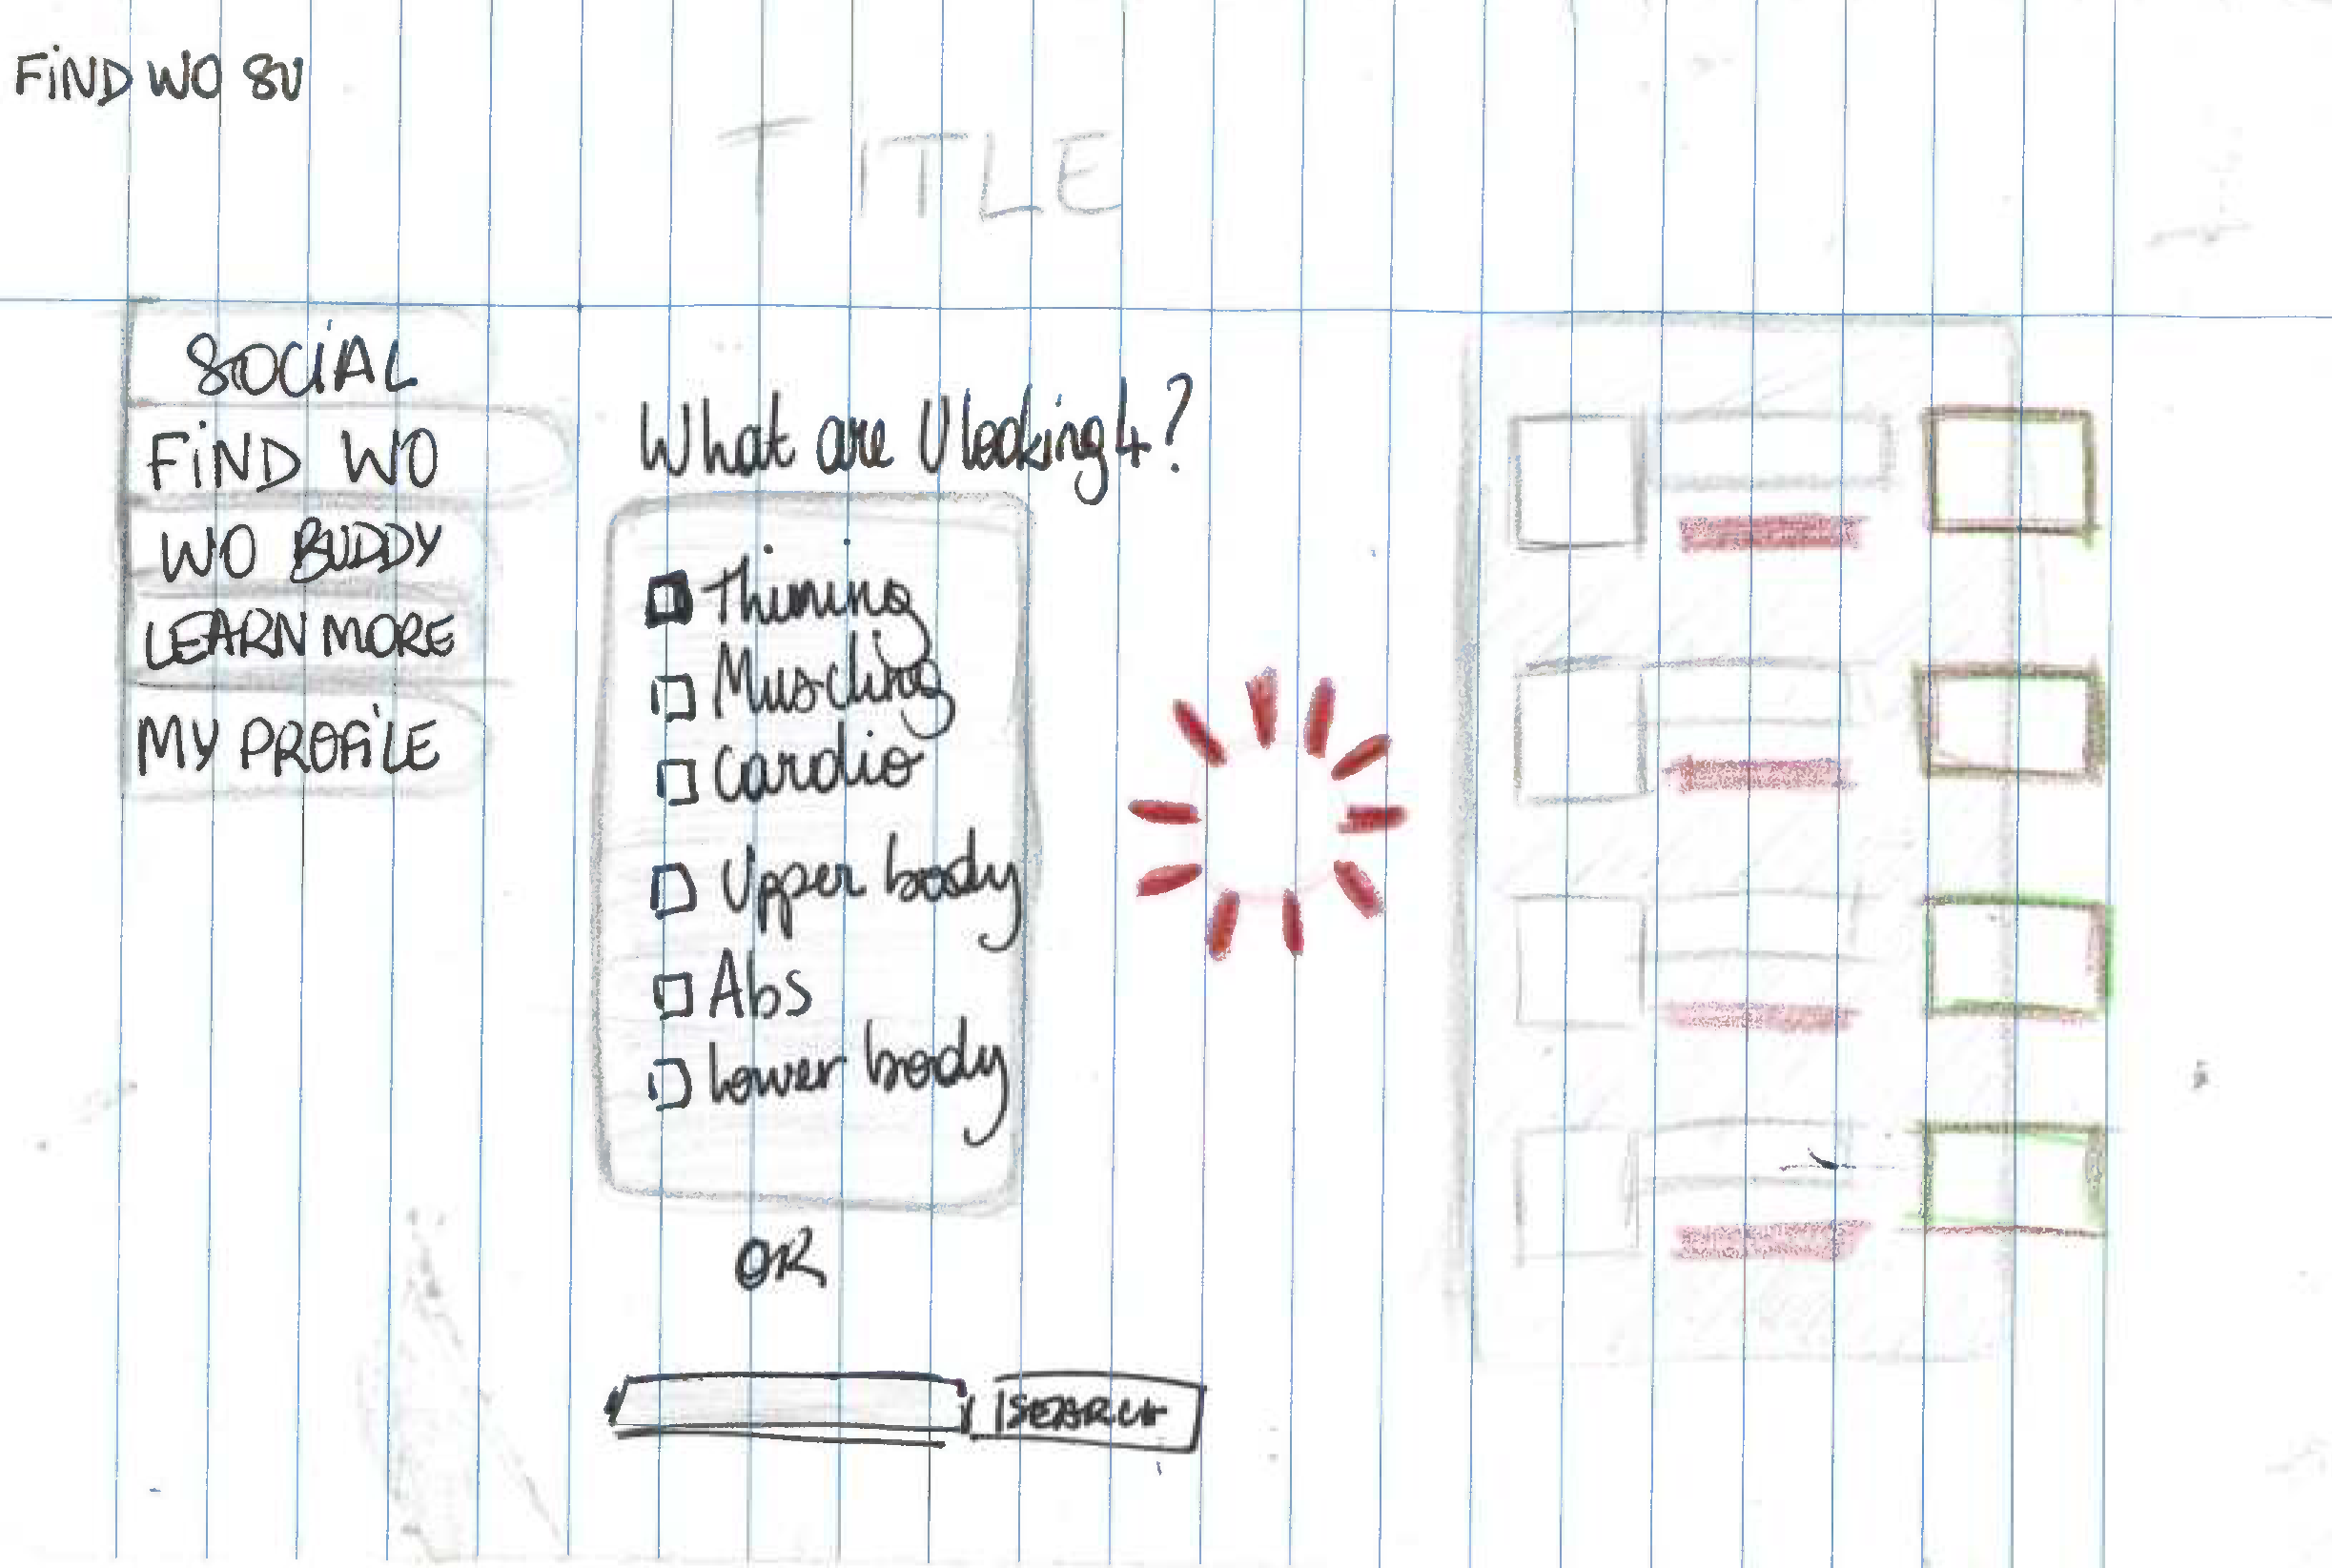 FIND WO SU
TITLE
SOCIAL
FIND WO
WO BUDDY
LEARN MORE
MY PROFILE
What are U looking 4?
Thining
Muscling
Cardio
Upper body
Abs
Lower body
OR
SEARCH